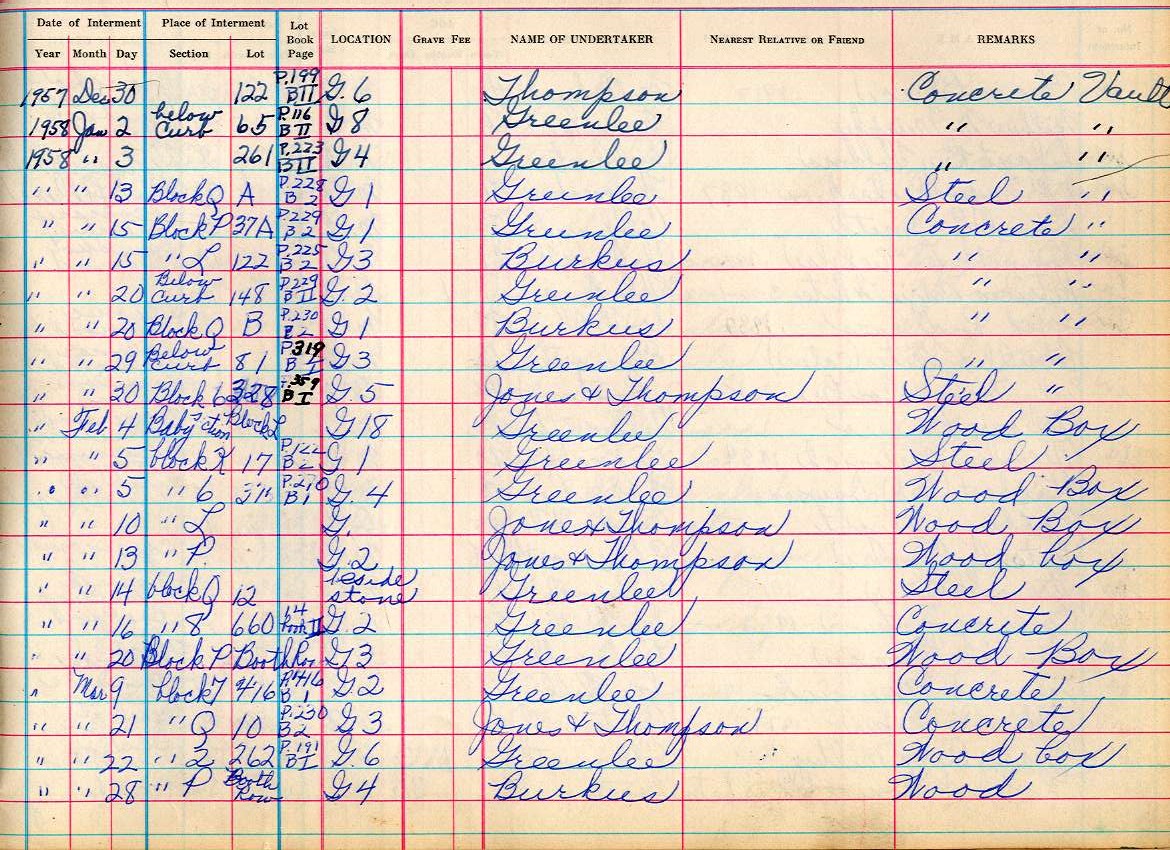 Date of Interment Place of Interment Lot Book Page LOCATION GRAVE FEE NAME OF UNDERTAKER NEAREST RELATIVE OR FRIEND REMARKS
Year Month Day Section Lot
1957 Dec 30 122 P.199 B II G. 6 Thompson Concrete Vault
1958 Jan 2 below curb 65 P.116 B II G 8 Greenlee " "
1958 " 3 261 P.223 B II G 4 Greenlee " "
" " 13 Block Q A P.228 B 2 G 1 Greenlee Steel "
" " 15 Block P 37A P.229 B 2 G 1 Greenlee Concrete "
" " 15 " L 122 P.225 B 2 G 3 Burkus " "
" " 20 Below curb 148 P.229 B II G. 2 Greenlee " "
" " 20 Block Q B P.230 B 2 G 1 Burkus " "
" " 29 Below curb 81 P 319 B I G 3 Greenlee " "
" " 30 Block 6 328 359 B I G. 5 Jones & Thompson Steel "
" Feb 4 Baby Block L G 18 Greenlee Wood Box
" " 5 block R 17 P.122 B 2 G 1 Greenlee Steel
" " 5 " 6 P.270 B 1 G. 4 Greenlee Wood Box
" " 10 " L G. Jones & Thompson Wood Box
" " 13 " P. G. 2 Jones & Thompson Wood box
" " 14 block Q 12 beside stone Greenlee Steel
" " 16 " 8 660 Book II G. 2 Greenlee Concrete
" " 20 Block P Booth Row G 3 Greenlee Wood Box
" Mar 9 block 7 416 P 416 B 1 G 2 Greenlee Concrete
" " 21 " Q 10 P.230 B 2 G 3 Jones & Thompson Concrete
" " 22 " 2 262 P.191 B I G. 6 Greenlee Wood box
" " 28 " P Booth Row G 4 Burkus Wood